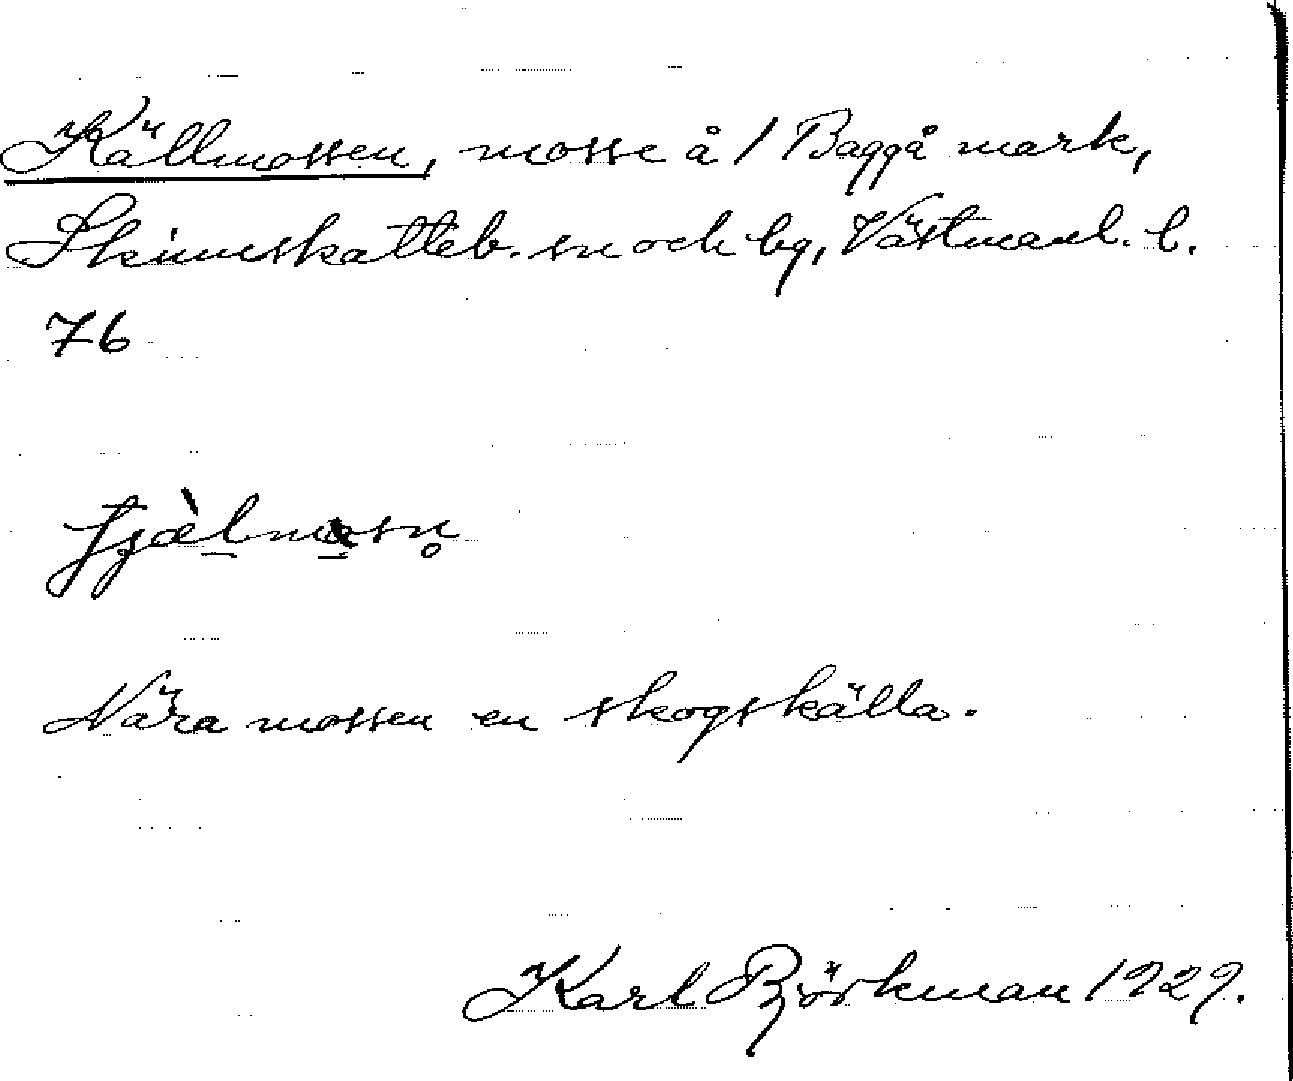 Källmossen, mosse å / Baggå mark,
Skinnskatteb. sn och bg, Västmanl. l.
76
Nära mossen en skogskälla.
Karl Björkman 1929.